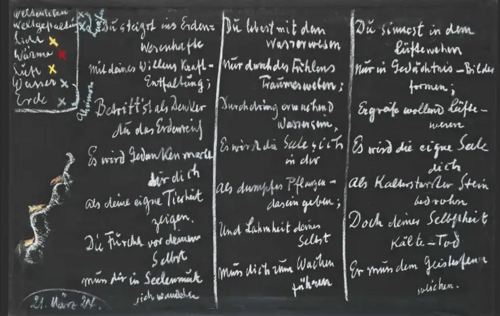 Weltgestaltung
Licht x
Wärme x
Luft x
Wasser x
Erde x
Du steigst ins Erden-
wesenhafte
mit deines Willens Kraft-
Entfaltung;
Betritt'st als Denker
du das Erdenreich
Es wird Gedankenmacht
dir dich
als deine eigne Tierheit
zeigen.
Die Furcht vor deinem
Selbst
muss dir in Seelenmut
sich wandeln
Du lebest mit dem
Wasserwesen
Nur durch des Fühlens
Traumesweben;
Durchdring erwachend
Wassersein,
Es wird die Seele sich
in dir
als dumpfes Pflanzen-
dasein geben;
Und Lahmheit deines
Selbst
Muss dich zum Wachen
führen
Du sinnest in dem
Lüftewehen
Nur in Gedächtnis-Bilder-
formen;
Ergreife wollend Lüfte-
wesen
Es wird die eigne Seele
dich
Als kalterstarrter Stein
bedrohn
Doch deiner Selbstheit
Kälte-Tod
Er muss dem Geistesfeuer
weichen.
21. März 24.